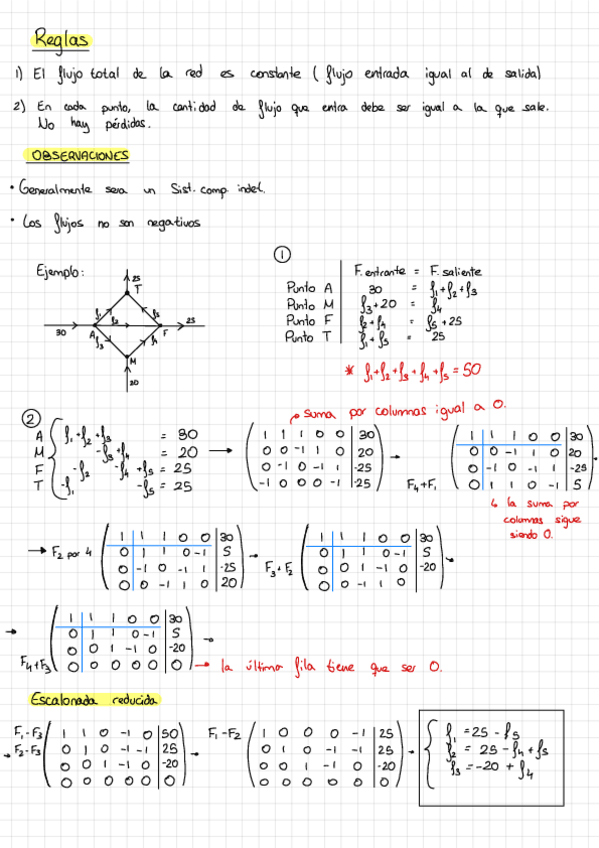 Reglas
1) El flujo total de la red es constante ( flujo entrada igual al de salida)
2) En cada punto, la cantidad de flujo que entra debe ser igual a la que sale.
No hay pérdidas.
OBSERVACIONES
• Generalmente sera un Sist. comp. indet.
• Los flujos no son negativos
Ejemplo:
25
T
f1 f2 f5
30 A F 25
f3 f4
M
20
①
F. entrante = F. saliente
Punto A 30 = f1+f2+f3
Punto M f3+20 = f4
Punto F f2+f4 = f5+25
Punto T f1+f5 = 25
* f1+f2+f3+f4+f5 = 50
②
suma por columnas igual a 0.
A f1+f2+f3 = 30
M -f3+f4 = 20
F -f2 -f4+f5 = -25
T -f1 -f5 = -25
1 1 1 0 0 30
0 0 -1 1 0 20
0 -1 0 -1 1 -25
-1 0 0 0 -1 -25
F4+F1
1 1 1 0 0 30
0 0 -1 1 0 20
0 -1 0 -1 1 -25
0 1 1 0 -1 5
la suma por
columnas sigue
siendo 0.
F2 por 4
1 1 1 0 0 30
0 1 1 0 -1 5
0 -1 0 -1 1 -25
0 0 -1 1 0 20
F3+F2
1 1 1 0 0 30
0 1 1 0 -1 5
0 0 1 -1 0 -20
0 0 -1 1 0
F4+F3
1 1 1 0 0 30
0 1 1 0 -1 5
0 0 1 -1 0 -20
0 0 0 0 0 0
la última fila tiene que ser 0.
Escalonada reducida
F1-F3
F2-F3
1 1 0 -1 0 50
0 1 0 -1 -1 25
0 0 1 -1 0 -20
0 0 0 0 0 0
F1-F2
1 0 0 0 -1 25
0 1 0 -1 -1 25
0 0 1 -1 0 -20
0 0 0 0 0 0
f1 = 25 - f5
f2 = 25 - f4 + f5
f3 = -20 + f4